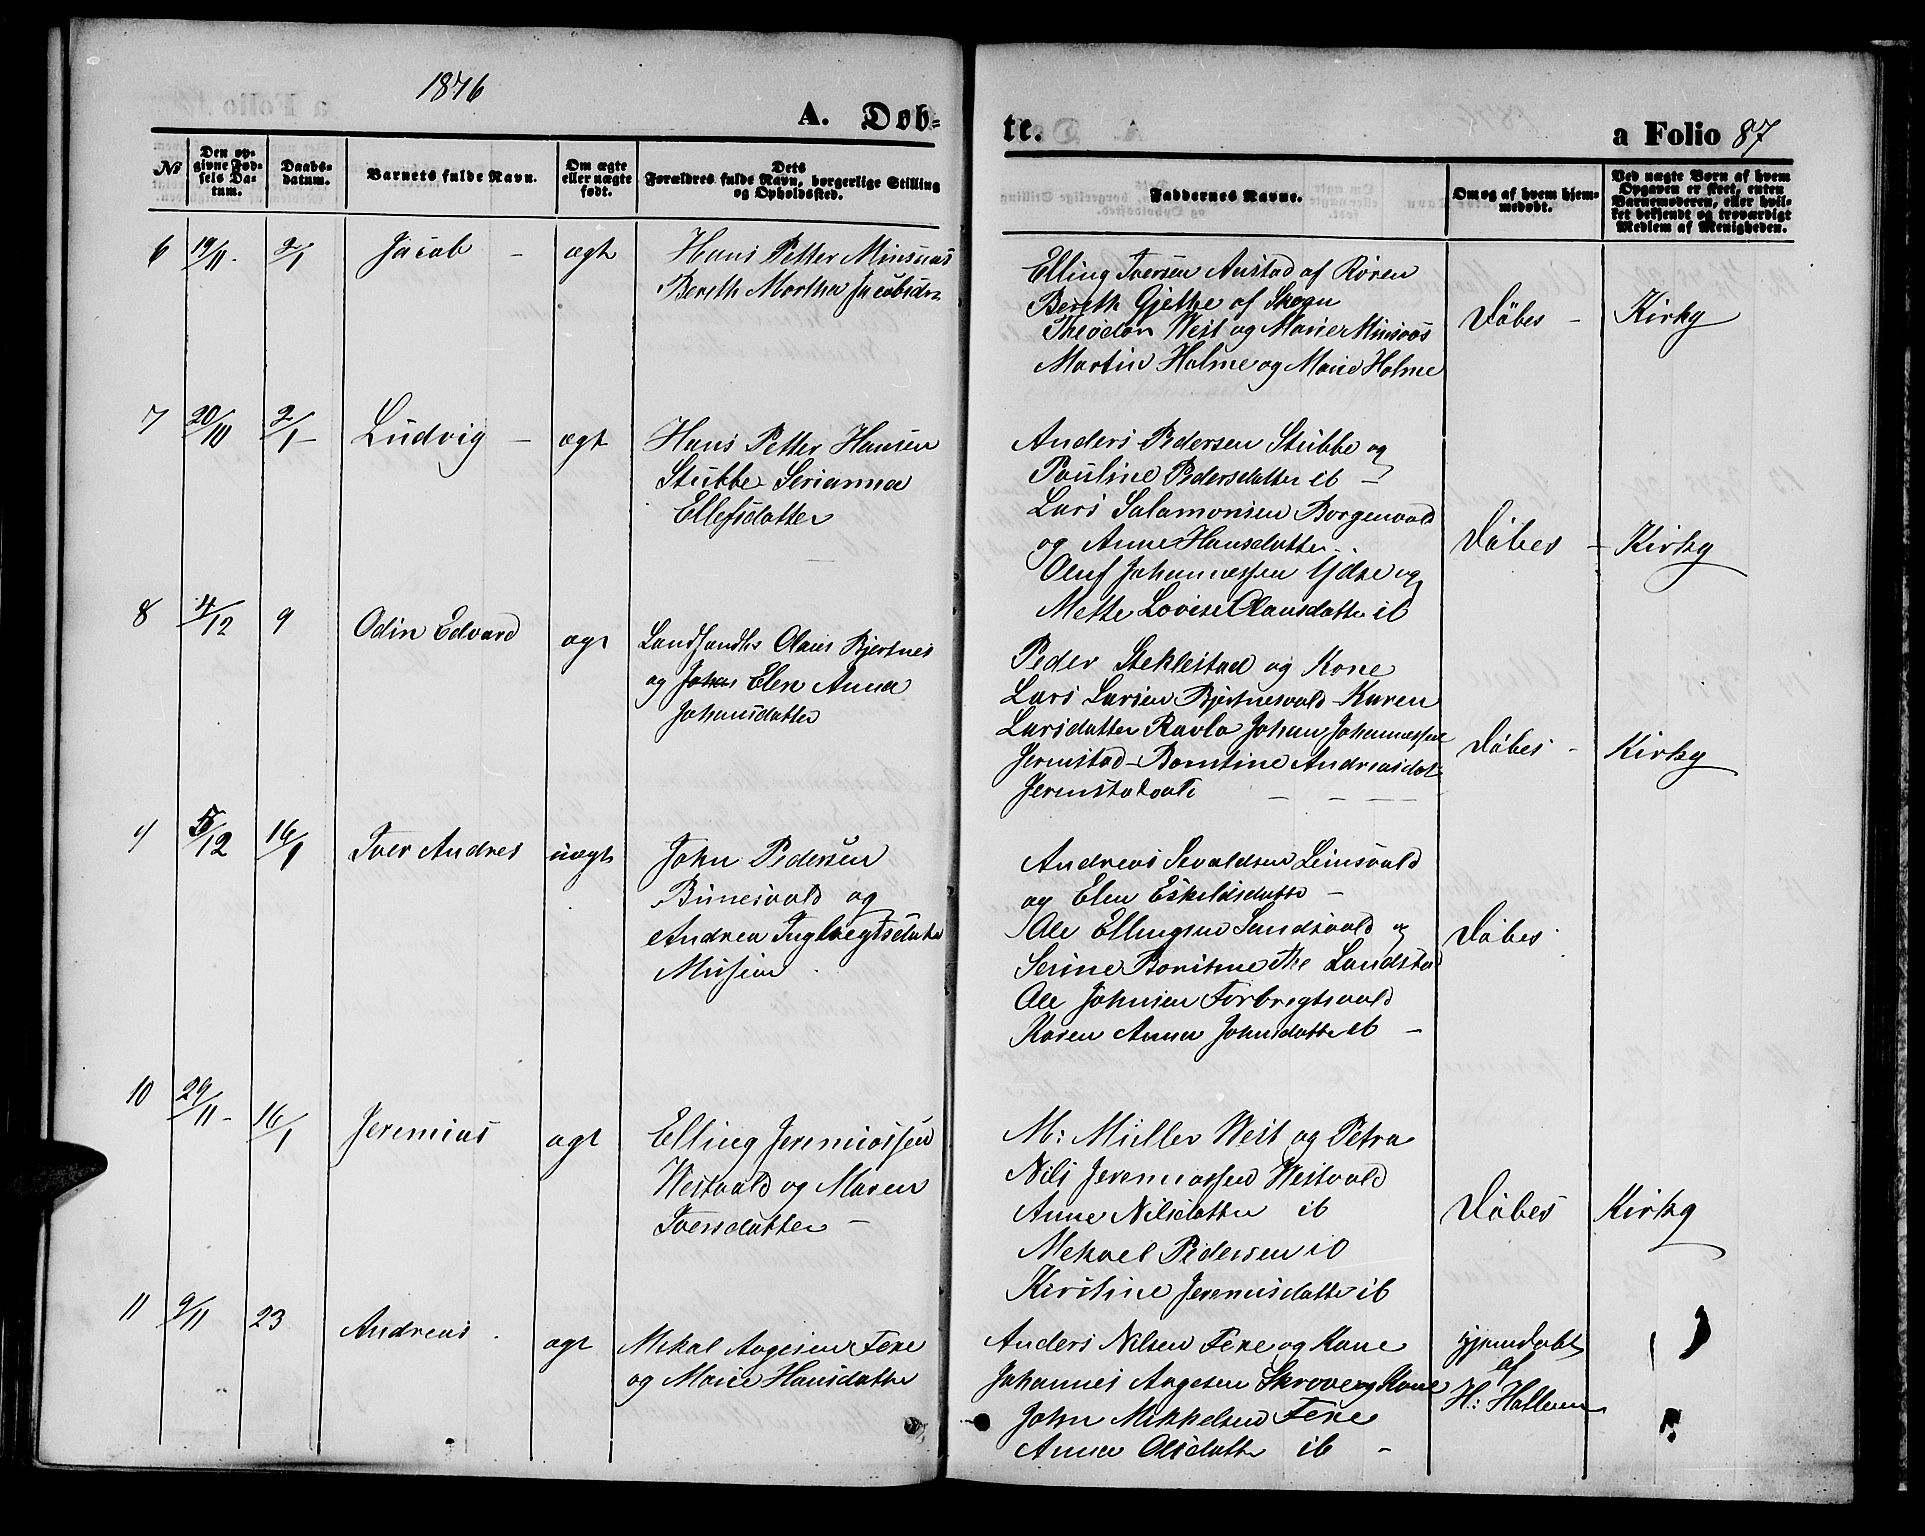 1876
A. Døb=
te.
a Folio 87
№
Den op-
givne Fød-
sels Da-
tum.
Daabs-
datum.
Barnets fulde Navn.
Om ægte
eller uægte
født.
Dets
Forældres fulde Navn, borgerlige Stilling
og Opholdssted.
Faddernes Navne.
Om og af hvem hjem-
medøbt.
Ved uægte Børn af hvem
Opgaven er skeet, enten
Barnemoderen, eller hvil-
ket bekjendt og troværdigt
Medlem af Menigheden.
6 19/11 2/1 Jacob – ægt
Hans Petter Minsaas
Bereth Martha Jacobsdr
Elling Iversen Austad af Røren
Bereth Gjethe af Skogn
Theodor Weist og Marie Minsaas
Martin Holme og Marie Holme
Døbes – Kirky
7 20/10 2/1 – Ludvig – ægt
Hans Petter Hansen
Stubbe Serianna
Ellefsdatter
Anders Pedersen Stubbe og
Pauline Pedersdatter ib –
Lars Salamonsen Borgenvald
og Anne Hansdatter
Oluf Johannessen Ydse og
Mette Lovise Olausdatter ib
Døbes – Kirky
8 4/12 9 Odin Edvard ægt
Landhandler Olaus Bjertnes
og Johan Elen Anna
Johansdatter
Peder Steklestad og Kone
Lars Larsen Bjertnesvald Karen
Larsdatter Ravlo Johan Johannessen
Jermstad – Borntine Andreasdat
Jermstadvald
Døbes – Kirky
9 5/12 16/1 Iver Andres uægt
John Pedersen
Bunesvald og
Andrea Ingebregtsdatter
Musum
Andreas Sevaldsen Leinsvald
og Elen Eskeldsdatter –
Ole Ellingsen Sundsvald og
Serine Borntine Landstad
Ole Johnsen Forbregtsvald
Karen Anna Johnsdatter ib –
Døbes
10 29/11 – 16/1 Jeremias ægt
Elling Jeremiassen
Westvald og Maren
Iversdatter –
M: Müller Weist og Petra
Nils Jeremiassen Westvald
Anne Nilsdatter ib
Mekael Pedersen ib
Kirstine Jeremisdatter ib
Døbes Kirky
11 9/11 23 Andreas ægt
Mekal Aagesen Fexe
og Marie Hansdatter
Anders Nilsen Fexe og Kone
Johannes Aagesen Skrove og Kone
John Mikkelsen Fexe
Anna Olsdatter ib –
hjemdøbt
af
H: Hallem